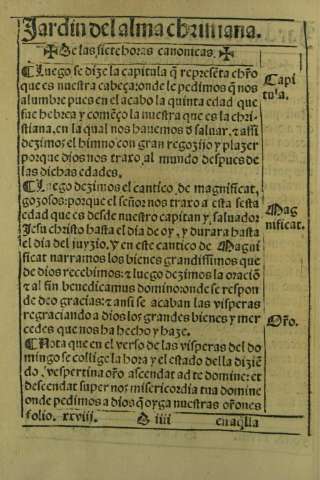 Jardin del alma christiana.
✠ De las siete horas canonicas. ✠
¶ Luego se dize la capitula q̃ represẽta chr̃o
que es nuestra cabeça: onde le pedimos q̃ nos
alumbre pues en el acabo la quinta edad que
fue hebrea y comẽço la nuestra que es la chri-
stiana, en la qual nos hauemos d̕ saluar. ⁊ assi
dezimos el himno con gran regozijo y plazer
porque dios nos traxo al mundo despues de
las dichas edades.
Capi
tula.
¶ Luego dezimos el cantico de magnificat,
gozosos: porque el señor nos traxo a esta sesta
edad que es desde nuestro capitan y saluador
Jesu christo hasta el dia de oy, y durara hasta
el dia del juyzio. Y en este cantico de Magni
ficat narramos los bienes grandissimos que
de dios recebimos: ⁊ luego dezimos la oraciõ
⁊ al fin benedicamus domino: onde se respon
de deo gracias: ⁊ ansi se acaban las visperas
regraciando a dios los grandes bienes y mer
cedes que nos ha hecho y haze.
Mag
nificat.
Orõ.
¶ Nota que en el verso de las visperas del do
mingo se collige la hora y el estado della diziẽ
do, vespertina orõ ascendat ad te domine: et
descendat super nos misericordia tua domine
onde pedimos a dios q̃ oyga nuestras orõnes
folio. xxviij. D iiii en aq̃lla